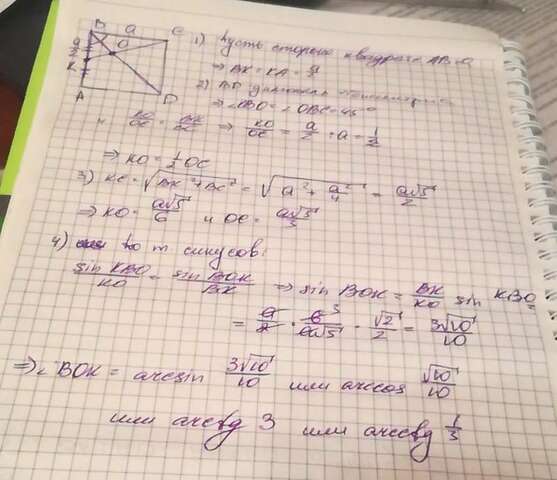 B a C
a/2 O
K
A D
1) Пусть сторона квадрата AB = a
⇒ BK = KA = a/2
2) BD
⇒ ∠KBO = ∠OBC = 45°
и KO/OC = BK/BC ⇒ KO/OC = a/2 : a = 1/2
⇒ KO = 1/2 OC
3) KC = √(BK² + BC²) = √(a² + a²/4) = a√5/2
⇒ KO = a√5/6 и OC = a√5/3
4) по т синусов:
sin KBO/KO = sin BOK/BK ⇒ sin BOK = BK/KO sin KBO =
= a/2 · 6/a√5 · √2/2 = 3√10/10
⇒ ∠BOK = arcsin 3√10/10 или arccos √10/10
или arctg 3 или arcctg 1/3